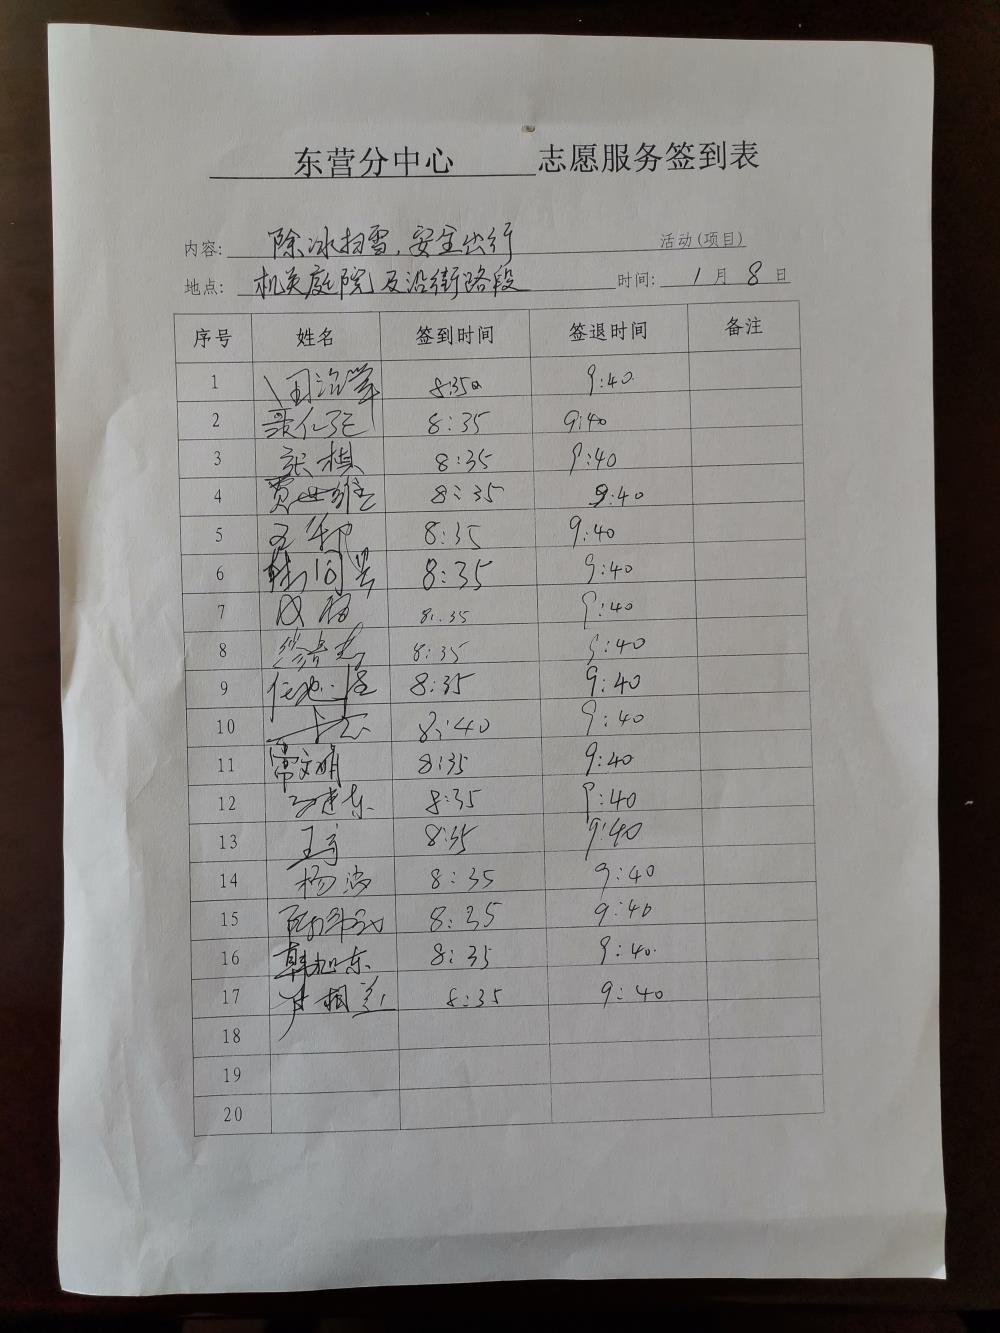 东营分中心 志愿服务签到表
内容: 除冰扫雪,安全出行 活动(项目)
地点: 机关庭院及沿街路段 时间: 1 月 8 日
序号 姓名 签到时间 签退时间 备注
1 8:35 9:40
2 8:35 9:40
3 张棋 8:35 9:40
4 贾世维 8:35 9:40
5 8:35 9:40
6 8:35 9:40
7 8:35 9:40
8 8:35 9:40
9 8:35 9:40
10 8:40 9:40
11 常文明 8:35 9:40
12 8:35 9:40
13 8:35 9:40
14 杨 8:35 9:40
15 8:35 9:40
16 韩旭东 8:35 9:40
17 8:35 9:40
18
19
20